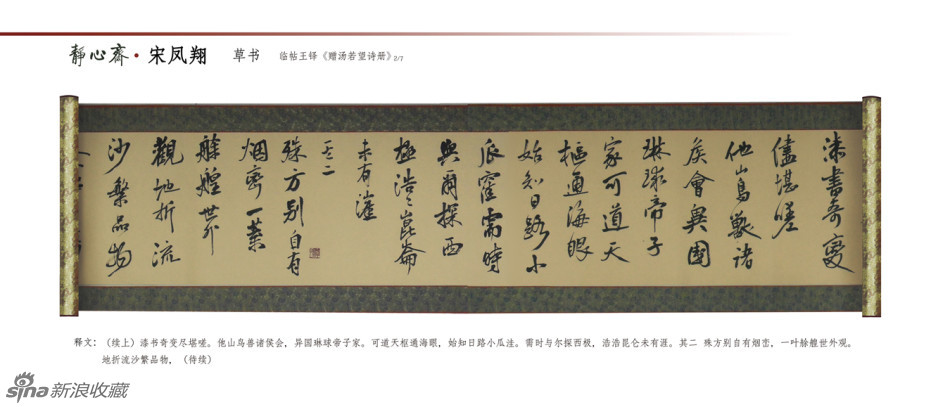 静心斋·宋凤翔 草书 临帖王铎《赠汤若望诗册》2/7
漆書奇變
儘堪嗟
他山鳥獸諸
侯會異國
琳球帝子
家可道天
樞通海眼
始知日路小
瓜窪需時
與爾探西
極浩々崑崙
未有涯
其二
殊方别自有
烟巒一葉
艅艎世外
觀地折流
沙繁品物
释文：（续上）漆书奇变尽堪嗟。他山鸟兽诸侯会，异国琳球帝子家。可道天枢通海眼，始知日路小瓜洼。需时与尔探西极，浩浩昆仑未有涯。其二 殊方别自有烟峦，一叶艅艎世外观。
地折流沙繁品物，（待续）
sina新浪收藏